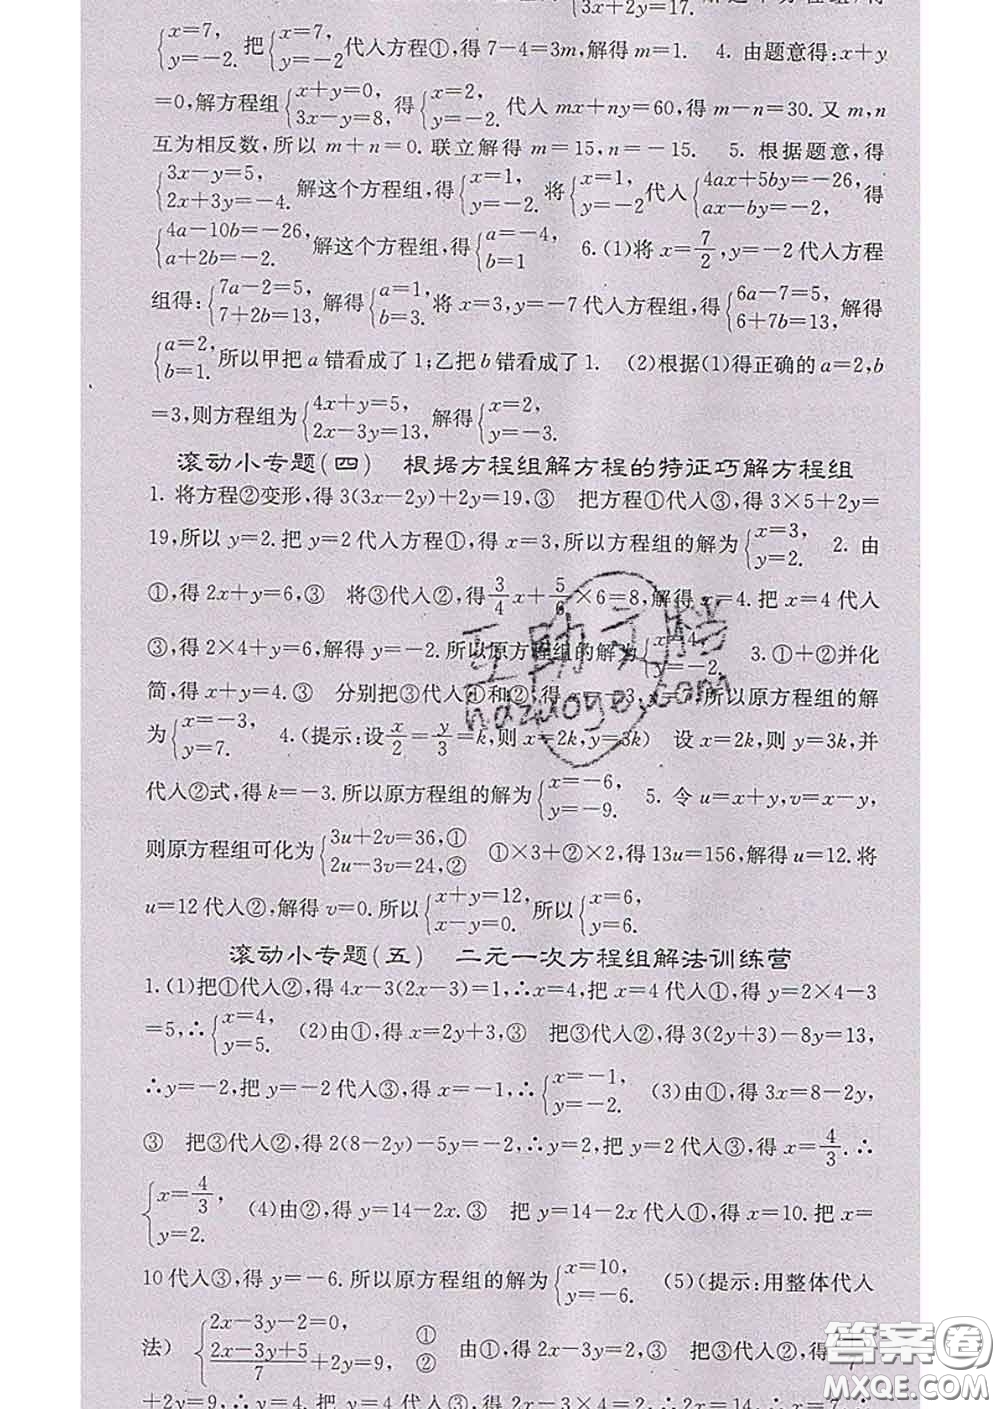 3x+2y=17.
{x=7, y=-2. 把{x=7, y=-2代入方程①,得7-4=3m,解得m=1. 4. 由题意得:x+y
=0,解方程组{x+y=0, 3x-y=8, 得{x=2, y=-2. 代入mx+ny=60,得m-n=30.又m,n
互为相反数,所以m+n=0.联立解得m=15,n=-15. 5. 根据题意,得
{3x-y=5, 2x+3y=-4. 解这个方程组,得{x=1, y=-2. 将{x=1, y=-2.代入{4ax+5by=-26, ax-by=-2, 得
{4a-10b=-26, a+2b=-2. 解这个方程组,得{a=-4, b=1 6.(1)将x=7/2,y=-2代入方程
组得:{7a-2=5, 7+2b=13, 解得{a=1, b=3. 将x=3,y=-7代入方程组,得{6a-7=5, 6+7b=13, 解得
{a=2, b=1. 所以甲把a错看成了1;乙把b错看成了1. (2)根据(1)得正确的a=2,b
=3,则方程组为{4x+y=5, 2x-3y=13, 解得{x=2, y=-3.
滚动小专题(四) 根据方程组解方程的特征巧解方程组
1. 将方程②变形,得3(3x-2y)+2y=19,③ 把方程①代入③,得3×5+2y=
19,所以y=2.把y=2代入方程①,得x=3,所以方程组的解为{x=3, y=2. 2. 由
①,得2x+y=6,③ 将③代入②,得3/4x+5/6×6=8,解得x=4.把x=4代入
③,得2×4+y=6,解得y=-2.所以原方程组的解为{x=4, y=-2. 3.①+②并化
简,得x+y=4.③ 分别把③代入①和②,得 -3,x= 所以原方程组的解
为{x=-3, y=7. 4.(提示:设x/2=y/3=k,则x=2k,y=3k) 设x=2k,则y=3k,并
代入②式,得k=-3.所以原方程组的解为{x=-6, y=-9. 5. 令u=x+y,v=x-y,
则原方程组可化为{3u+2v=36,① 2u-3v=24,② ①×3+②×2,得13u=156,解得u=12.将
u=12代入②,解得v=0.所以{x+y=12, x-y=0. 所以{x=6, y=6.
滚动小专题(五) 二元一次方程组解法训练营
1.(1)把①代入②,得4x-3(2x-3)=1,∴x=4,把x=4代入①,得y=2×4-3
=5,∴{x=4, y=5. (2)由①,得x=2y+3,③ 把③代入②,得3(2y+3)-8y=13,
∴y=-2,把y=-2代入③,得x=-1,∴{x=-1, y=-2. (3)由①,得3x=8-2y,
③ 把③代入②,得2(8-2y)-5y=-2,∴y=2,把y=2代入③,得x=4/3.∴
{x=4/3, y=2. (4)由②,得y=14-2x.③ 把y=14-2x代入①,得x=10.把x=
10代入③,得y=-6.所以原方程组的解为{x=10, y=-6. (5)(提示:用整体代入
法) {2x-3y-2=0, ① (2x-3y+5)/7+2y=9, ② 由①,得2x-3y=2,③ 把③代入②,得
+2y=9,∴y=4.把y=4代入③,得2x-3×4=2,∴x=7,∴
互助文档
hazuoye.com
答案圈
MXQE.COM